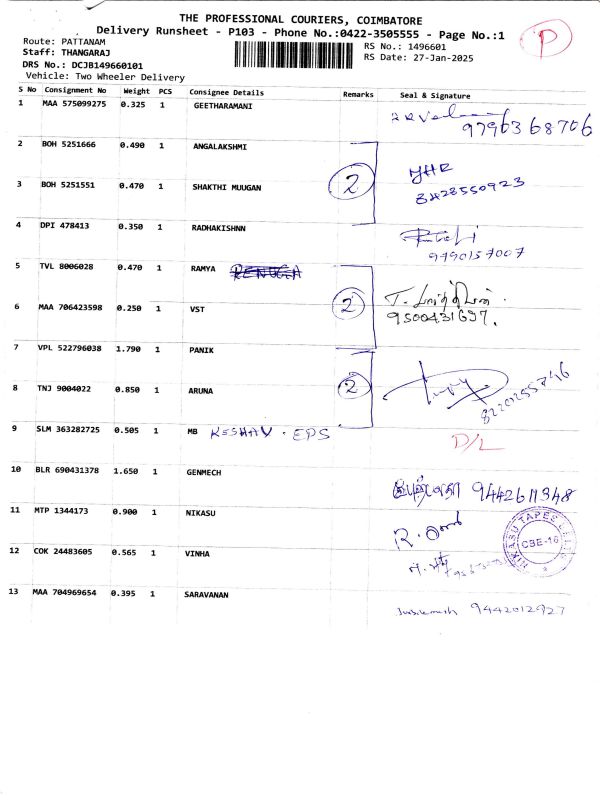 THE PROFESSIONAL COURIERS, COIMBATORE
Delivery Runsheet - P103 - Phone No.:0422-3505555 - Page No.:1
P
Route: PATTANAM
RS No.: 1496601
Staff: THANGARAJ
RS Date: 27-Jan-2025
DRS No.: DCJB149660101
Vehicle: Two Wheeler Delivery
S No Consignment No Weight PCS Consignee Details Remarks Seal & Signature
1 MAA 575099275 0.325 1 GEETHARAMANI
9796368706
2 BOH 5251666 0.490 1 ANGALAKSHMI
2
3 BOH 5251551 0.470 1 SHAKTHI MUUGAN
8428550923
4 DPI 478413 0.350 1 RADHAKISHNN
9790157007
5 TVL 8006028 0.470 1 RAMYA RENUGA
2
6 MAA 706423598 0.250 1 VST
9500431697.
7 VPL 522796038 1.790 1 PANIK
2
8 TNJ 9004022 0.850 1 ARUNA
8220255746
9 SLM 363282725 0.505 1 MB KESHAV . EPS
D/L
10 BLR 690431378 1.650 1 GENMECH
9442611348
11 MTP 1344173 0.900 1 NIKASU
NIKASU TAPES
CBE-16
12 COK 24483605 0.565 1 VINHA
13 MAA 704969654 0.395 1 SARAVANAN
9442012927